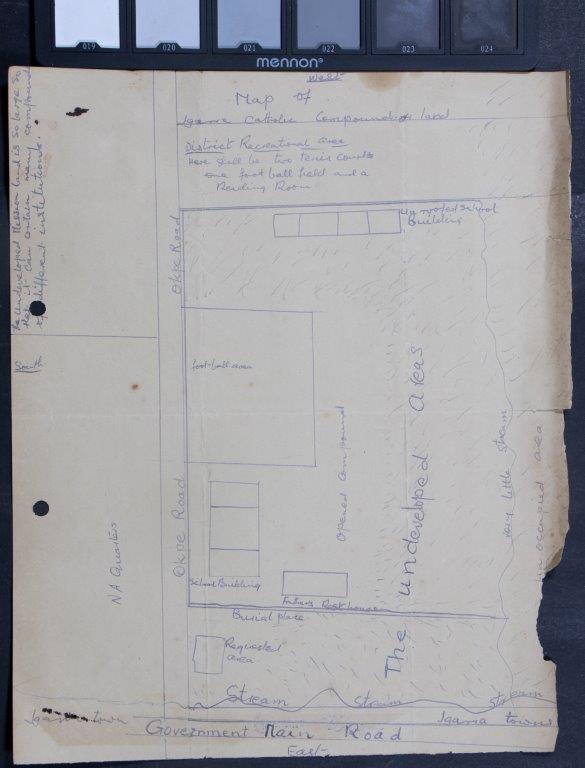 019 020 021 022 023 024
mennon
West
Map of
Igarra Catholic Compound & land
District Recreational area
Here shall be two tenis courts
one foot ball field and a
Reading Room
The undeveloped Mission land is so large so
that it can contain many compounds
of different institutions.
South
Okpe Road
Un roofed school
Building
foot-ball area
Okpe Road
NA Quarters
Opened compound
The undeveloped areas
very little stream
Un occupied area
School Building
Fathers Rest house
Burial place
Requested
area
Stream Stream Stream
Igarra town
Igarra towns
Government Main Road
East